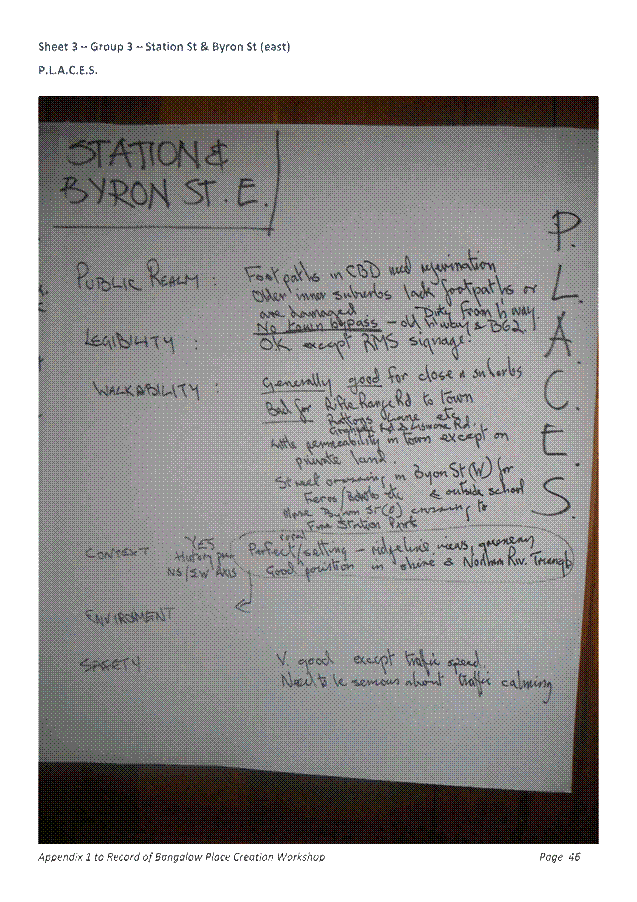 Sheet 3 – Group 3 – Station St & Byron St (east)
P.L.A.C.E.S.
STATION &
BYRON ST. E.
P.
L.
A.
C.
E.
S.
PUBLIC REALM : Footpaths in CBD need rejuvenation
Older inner suburbs lack footpaths or
are damaged Dirty from h'way.
No town bypass – old h'way & B62.
LEGIBILITY : OK except RMS signage.
WALKABILITY : Generally good for close n suburbs
Bad for Rifle Range Rd to town
Lane etc
Rd & Lismore Rd.
Little permeability in town except on
private land.
Street crossing in Byon St (W) for
Feros / etc & outside school
Byron St (E) crossing to
Station
CONTEXT YES
NS/EW AXIS
rural
Perfect/setting – ridgeline, views, greenery
Good position in shire & Northern Riv. Triangle
ENVIROMENT
SAFETY V. good except traffic speed.
Need to be serious about traffic calming
Appendix 1 to Record of Bangalow Place Creation Workshop
Page 46